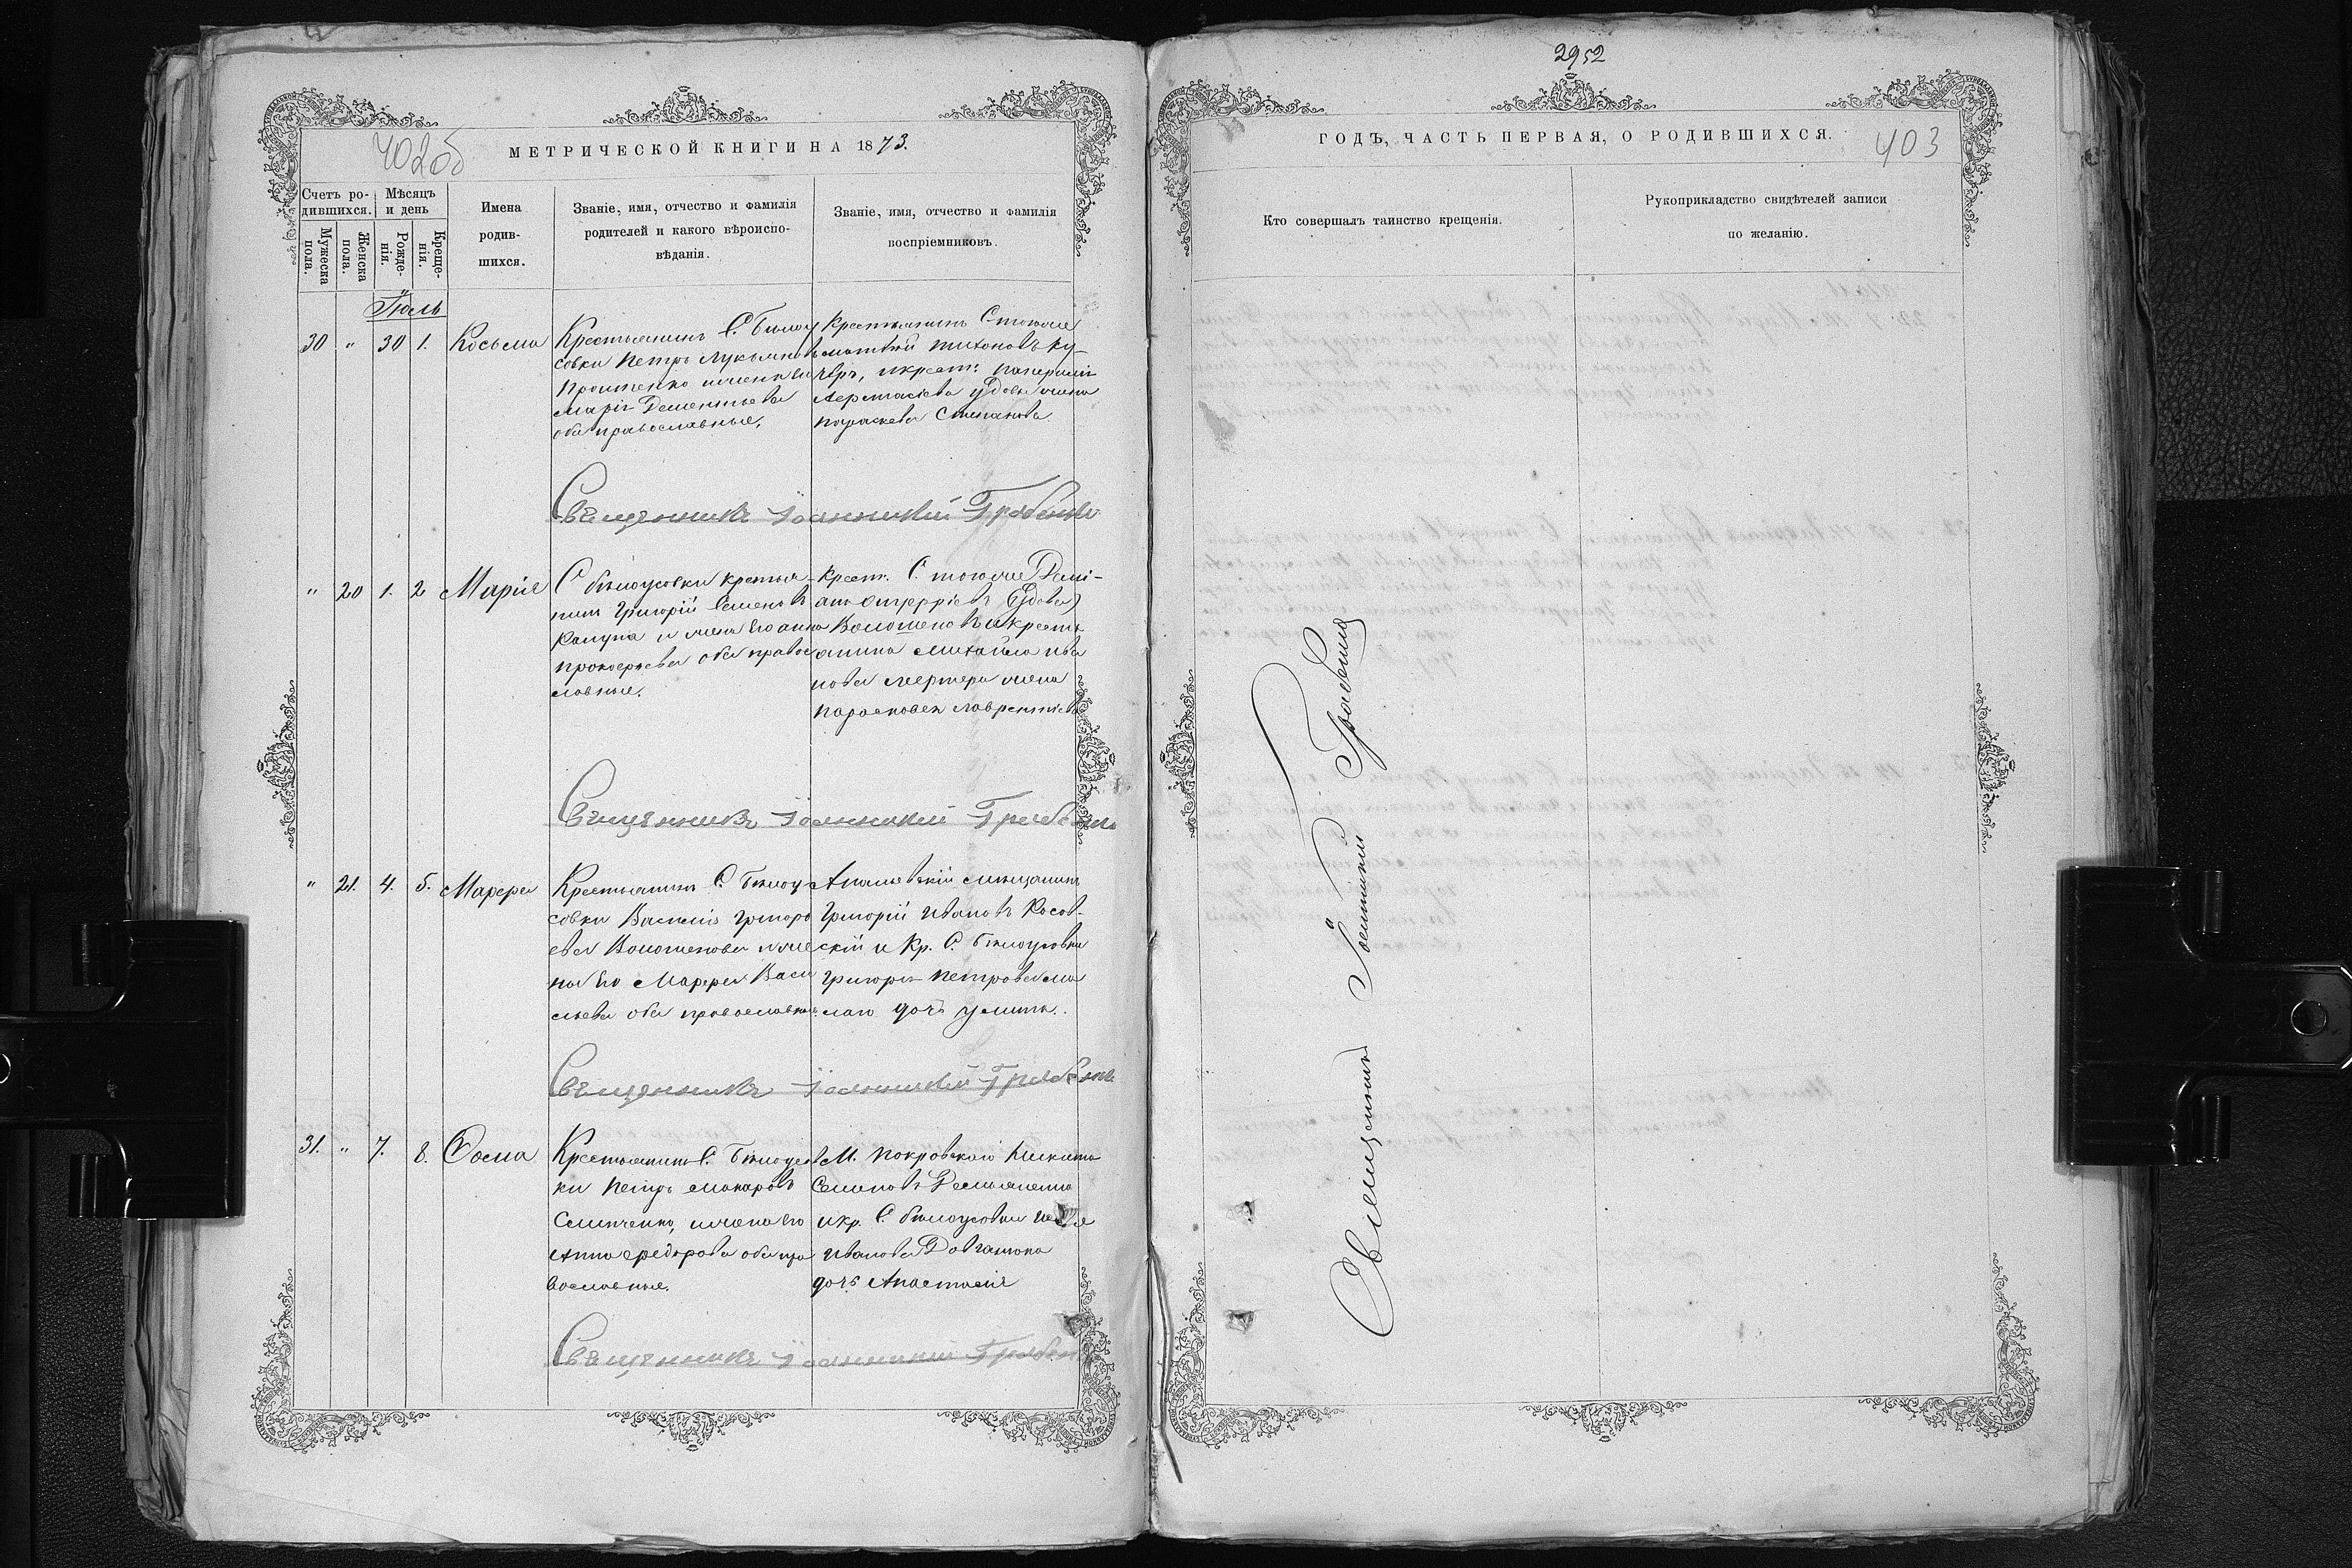 402об
МЕТРИЧЕСКОЙ КНИГИ НА 1873.
Счетъ ро-
дившихся.
Мужеска
пола.
Женска
пола.
Мѣсяцъ
и день
Рожде-
нія.
Креще-
нія.
Имена
родив-
шихся.
Званіе, имя, отчество и фамилія
родителей и какого вѣроиспо-
вѣданія.
Званіе, имя, отчество и фамилія
воспріемниковъ.
Іюль
30 " 30 1. Косьма
Крестьянинъ С. Билоу
совки Петръ Лукьяновъ
Проценко и жена его
Марія Дементьева
оба православные.
Крестьянинъ С.
Матвѣй Тихоновъ Ку-
жена
Параскева Степанова
Священникъ Іоанникій Грабенко
" 20 1. 2 Марія
С Билоусовки крестья-
нинъ Григорій Семеновъ
и жена его Анна
Прокофьева оба право
славные.
Крест. С.
Волошеновъ и крест
янина Михайла Ива
нова жена
Парасковея Лаврентіева
Священникъ Іоанникій Грабенко
" 21. 4. 5. Марфа
Крестьянинъ С. Билоу
совки Василій Григорь
евъ Волошеновъ и же
на его Марфа Васи
льева оба православные
Ананьевскій мѣщанинъ
Григорій Ивановъ Косов-
скій и Кр. С. Билоусовки
Григорія Петрова Ма
лаго дочь Улита.
Священникъ Іоанникій Грабенко
31. " 7. 8. Ѳома
Крестьянинъ С. Билоусов
ки Петръ Макаровъ
и жена его
Анна Федорова оба пра
вославные.
М. Покровскаго Никита
Семеновъ Демьяненко
и кр. С. Билоусовки
Иванова Довганюка
дочь Анастасія
Священникъ Іоанникій Грабенко
2952
ГОДЪ, ЧАСТЬ ПЕРВАЯ, О РОДИВШИХСЯ.
403
Кто совершалъ таинство крещенія.
Рукоприкладство свидѣтелей записи
по желанію.
Священникъ Іоанникій Грабенко